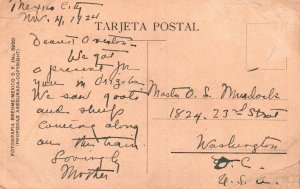 Mexico City
Nov. 4, 1924
TARJETA POSTAL
Dearest
We got
a present for
you in
We saw goats
and sheep
coming along
on the train
Loving
Mother
Master O. S. Murdock
1824. 23rd Street
Washington
D. C.
U. S. A.
FOTOGRAFIA. BREHME-MEXICO D. F.
(PROPIEDAD ASEGURADA-COPYRIGHT)